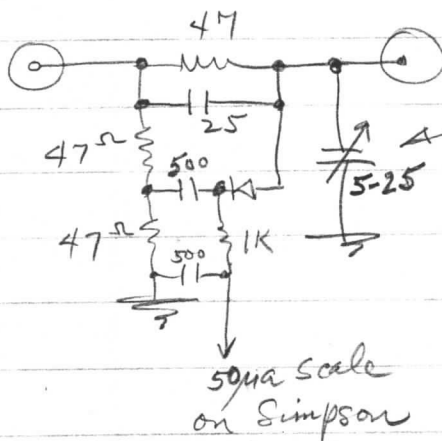 47
25
47Ω
500
5-25
47Ω
500
1K
50μa scale
on Simpson